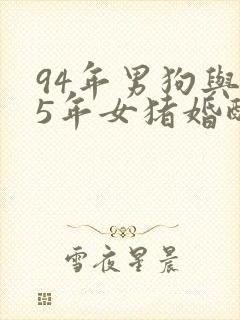 94年男狗與
5年女猪婚
雪夜星晨